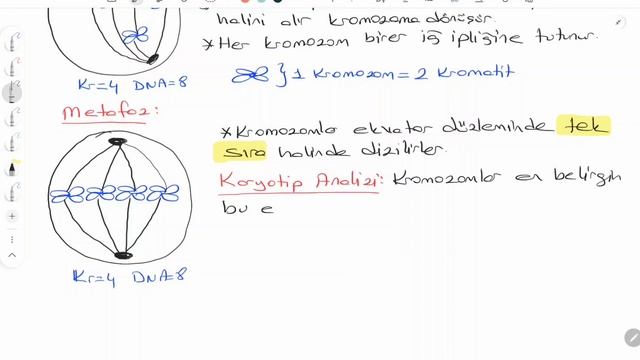 halini alır kromozoma dönüşür.
*Her kromozom birer iğ ipliğine tutunur.
} 1 Kromozom = 2 Kromatit
Kr=4 DNA=8
Metafaz:
*Kromozomlar ekvator düzleminde tek
sıra halinde dizilirler.
Karyotip Analizi: Kromozomlar en belirgin
bu e
Kr=4 DNA=8